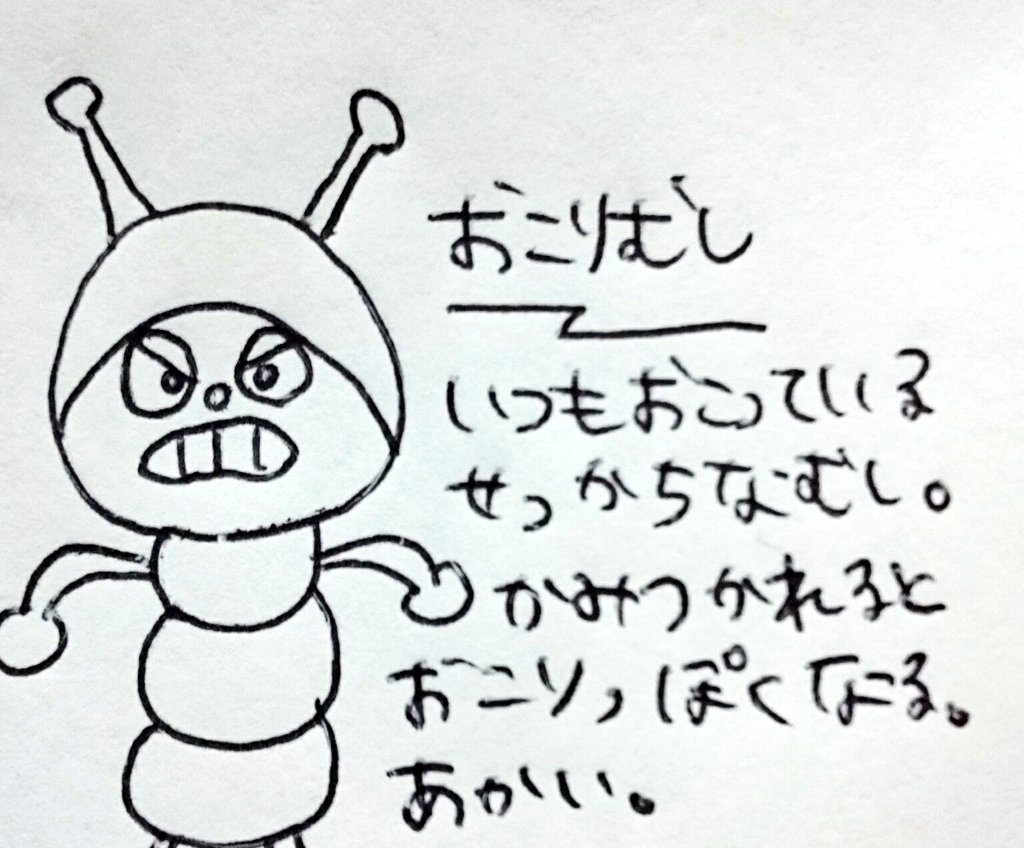 おこりむし
いつもおこっている
せっかちなむし。
かみつかれると
おこりっぽくなる。
あかい。